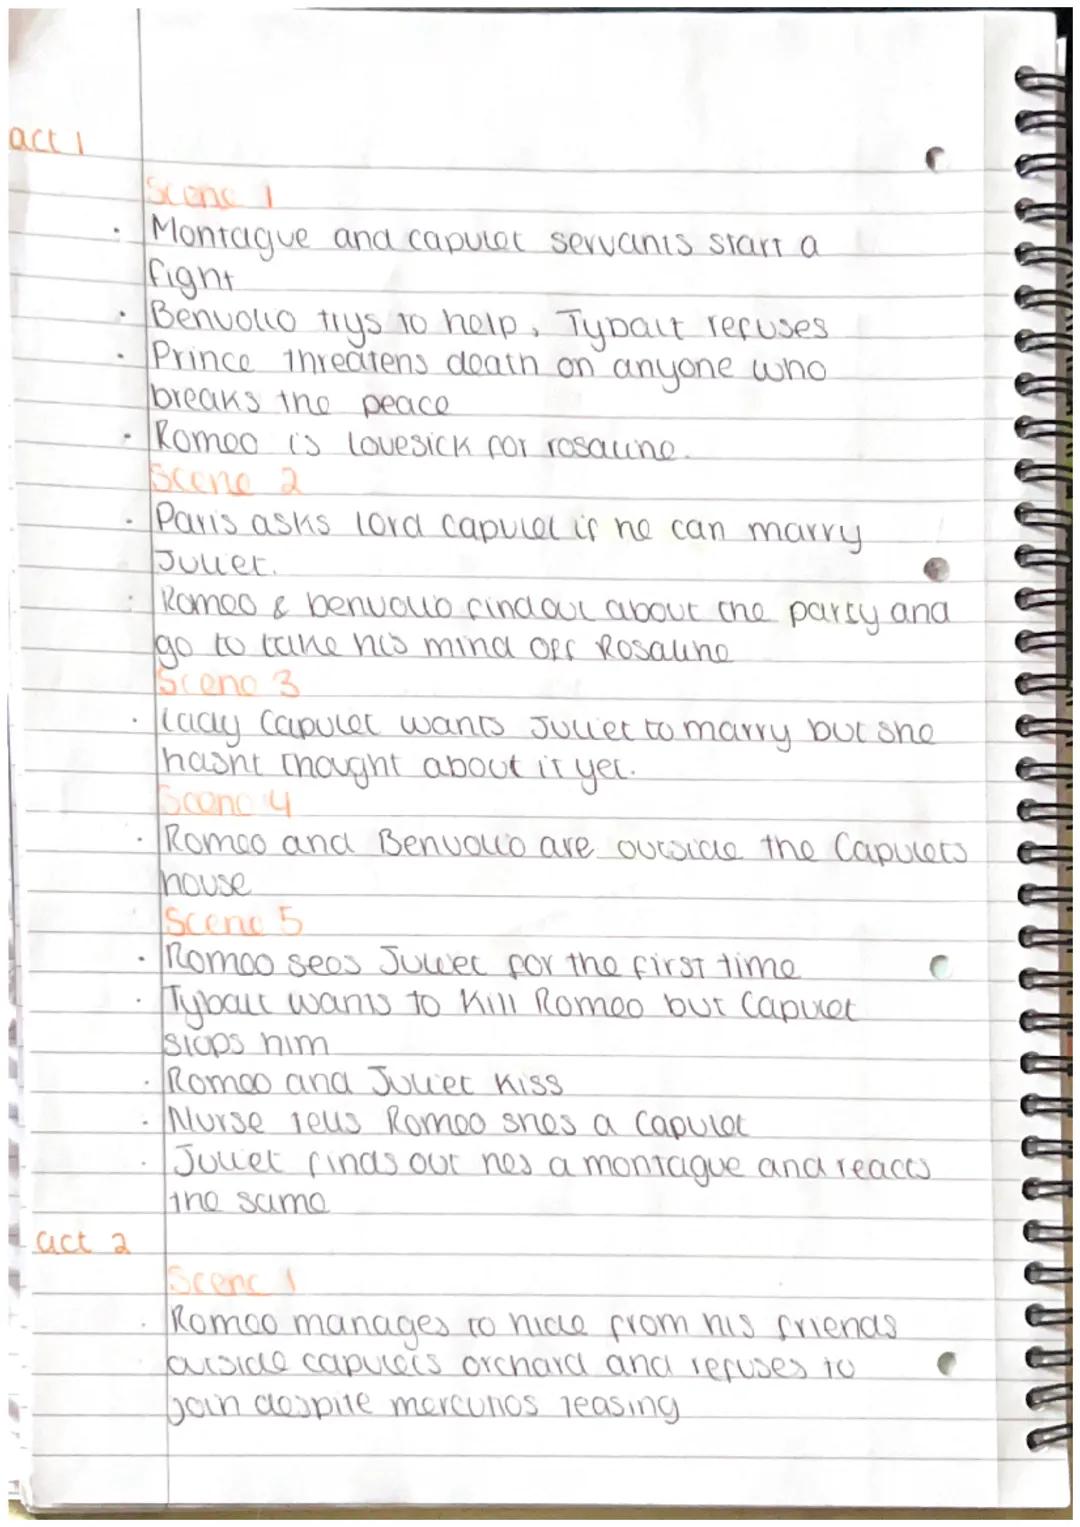 act 1
Scene 1
· Montague and capulet servants start a
fight
· Benvolio trys to help, Tybalt refuses
· Prince threatens death on anyone who
breaks the peace
· Romeo is lovesick for rosaline.
Scene 2
· Paris asks lord capulet if he can marry
Juliet.
· Romeo & benvolio findout about the party and
go to take his mind off Rosaline
Scene 3
· Lady Capulet wants Juliet to marry but she
hasnt thought about it yet.
Scene 4
· Romeo and Benvolio are outside the Capulets
house
Scene 5
· Romeo sees Juliet for the first time
· Tybalt wants to kill Romeo but Capulet
stops him
· Romeo and Juliet kiss
· Nurse tells Romeo shes a Capulet
· Juliet finds out hes a montague and reacts
the same
act 2
Scene 1
· Romeo manages to hide from his friends
outside capulets orchard and refuses to
join despite mercutios teasing